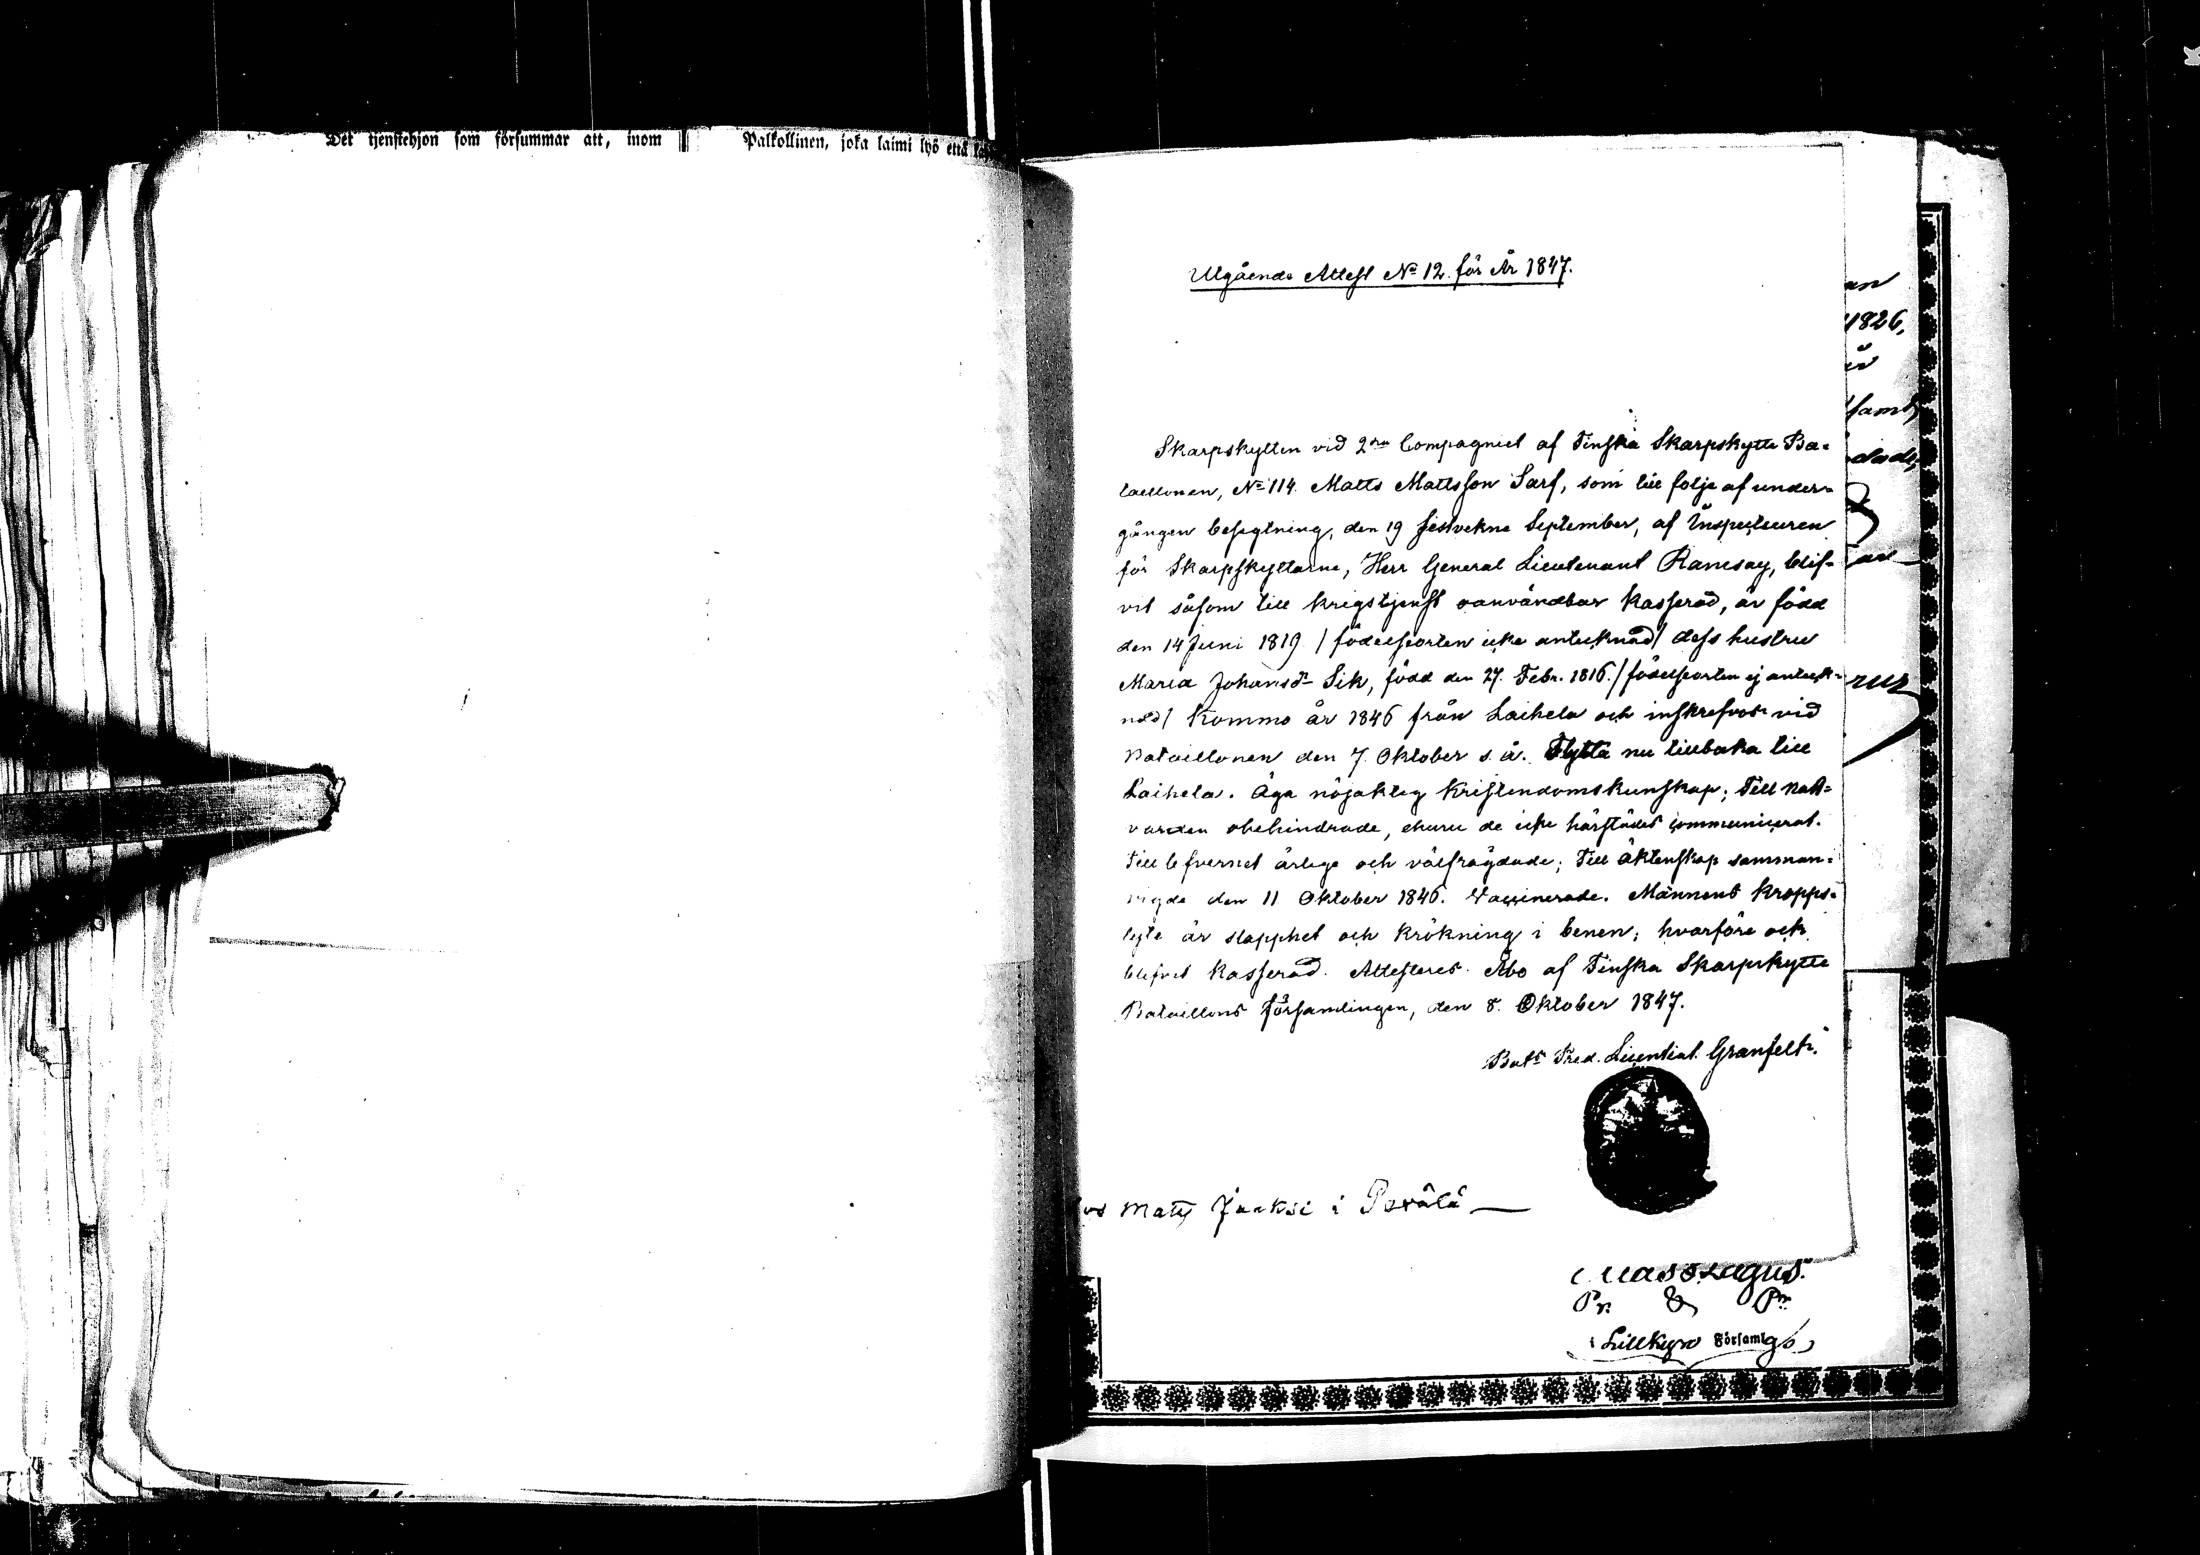 Det tjenstehjon som försummar att, inom
Palkollinen, joka laimi lyö että
Utgående Attest No 12. för År 1847.
Skarpskytten vid 2dra Compagniet af Finska Skarpskytte Ba-
taillonen, No 114. Matts Mattsson Sarf, som till följe af under-
gången besigtning, den 19 sistvekne September, af Inspecteuren
för Skarpskyttarne, Herr General Lieutenant Ramsay, blif-
vit såsom till krigstjenst oanvändbar kasserad, är född
den 14 Juni 1819 / födelseorten icke antecknad / dess hustru
Maria Johansdr Sik, född den 27. Febr. 1816. / födelseorten ej anteck-
nad / kommo år 1846 från Laihela och inskrefvos vid
Bataillonen den 7. Oktober s. å. Flytta nu tillbaka till
Laihela. Äga nöjaktig Kristendomskunskap; Till Natt-
varden obehindrade, ehuru de icke härstädes communicerat.
Till lefvernet ärlige och välfrägdade; Till äktenskap samman-
vigde den 11 Oktober 1846. Vaccinerade. Mannens kropps-
lyte är slapphet och krökning i benen; hvarföre och
blifvit kasserad. Attesteras. Åbo af Finska Skarpskytte
Bataillons församlingen, den 8. Oktober 1847.
Bats Pred. Licentiat. Granfelt.
Matts Jaaksi i Perälä
an
1826,
är
samt
Lagus.
Pr. & Pr
Lillkyro Församlgs